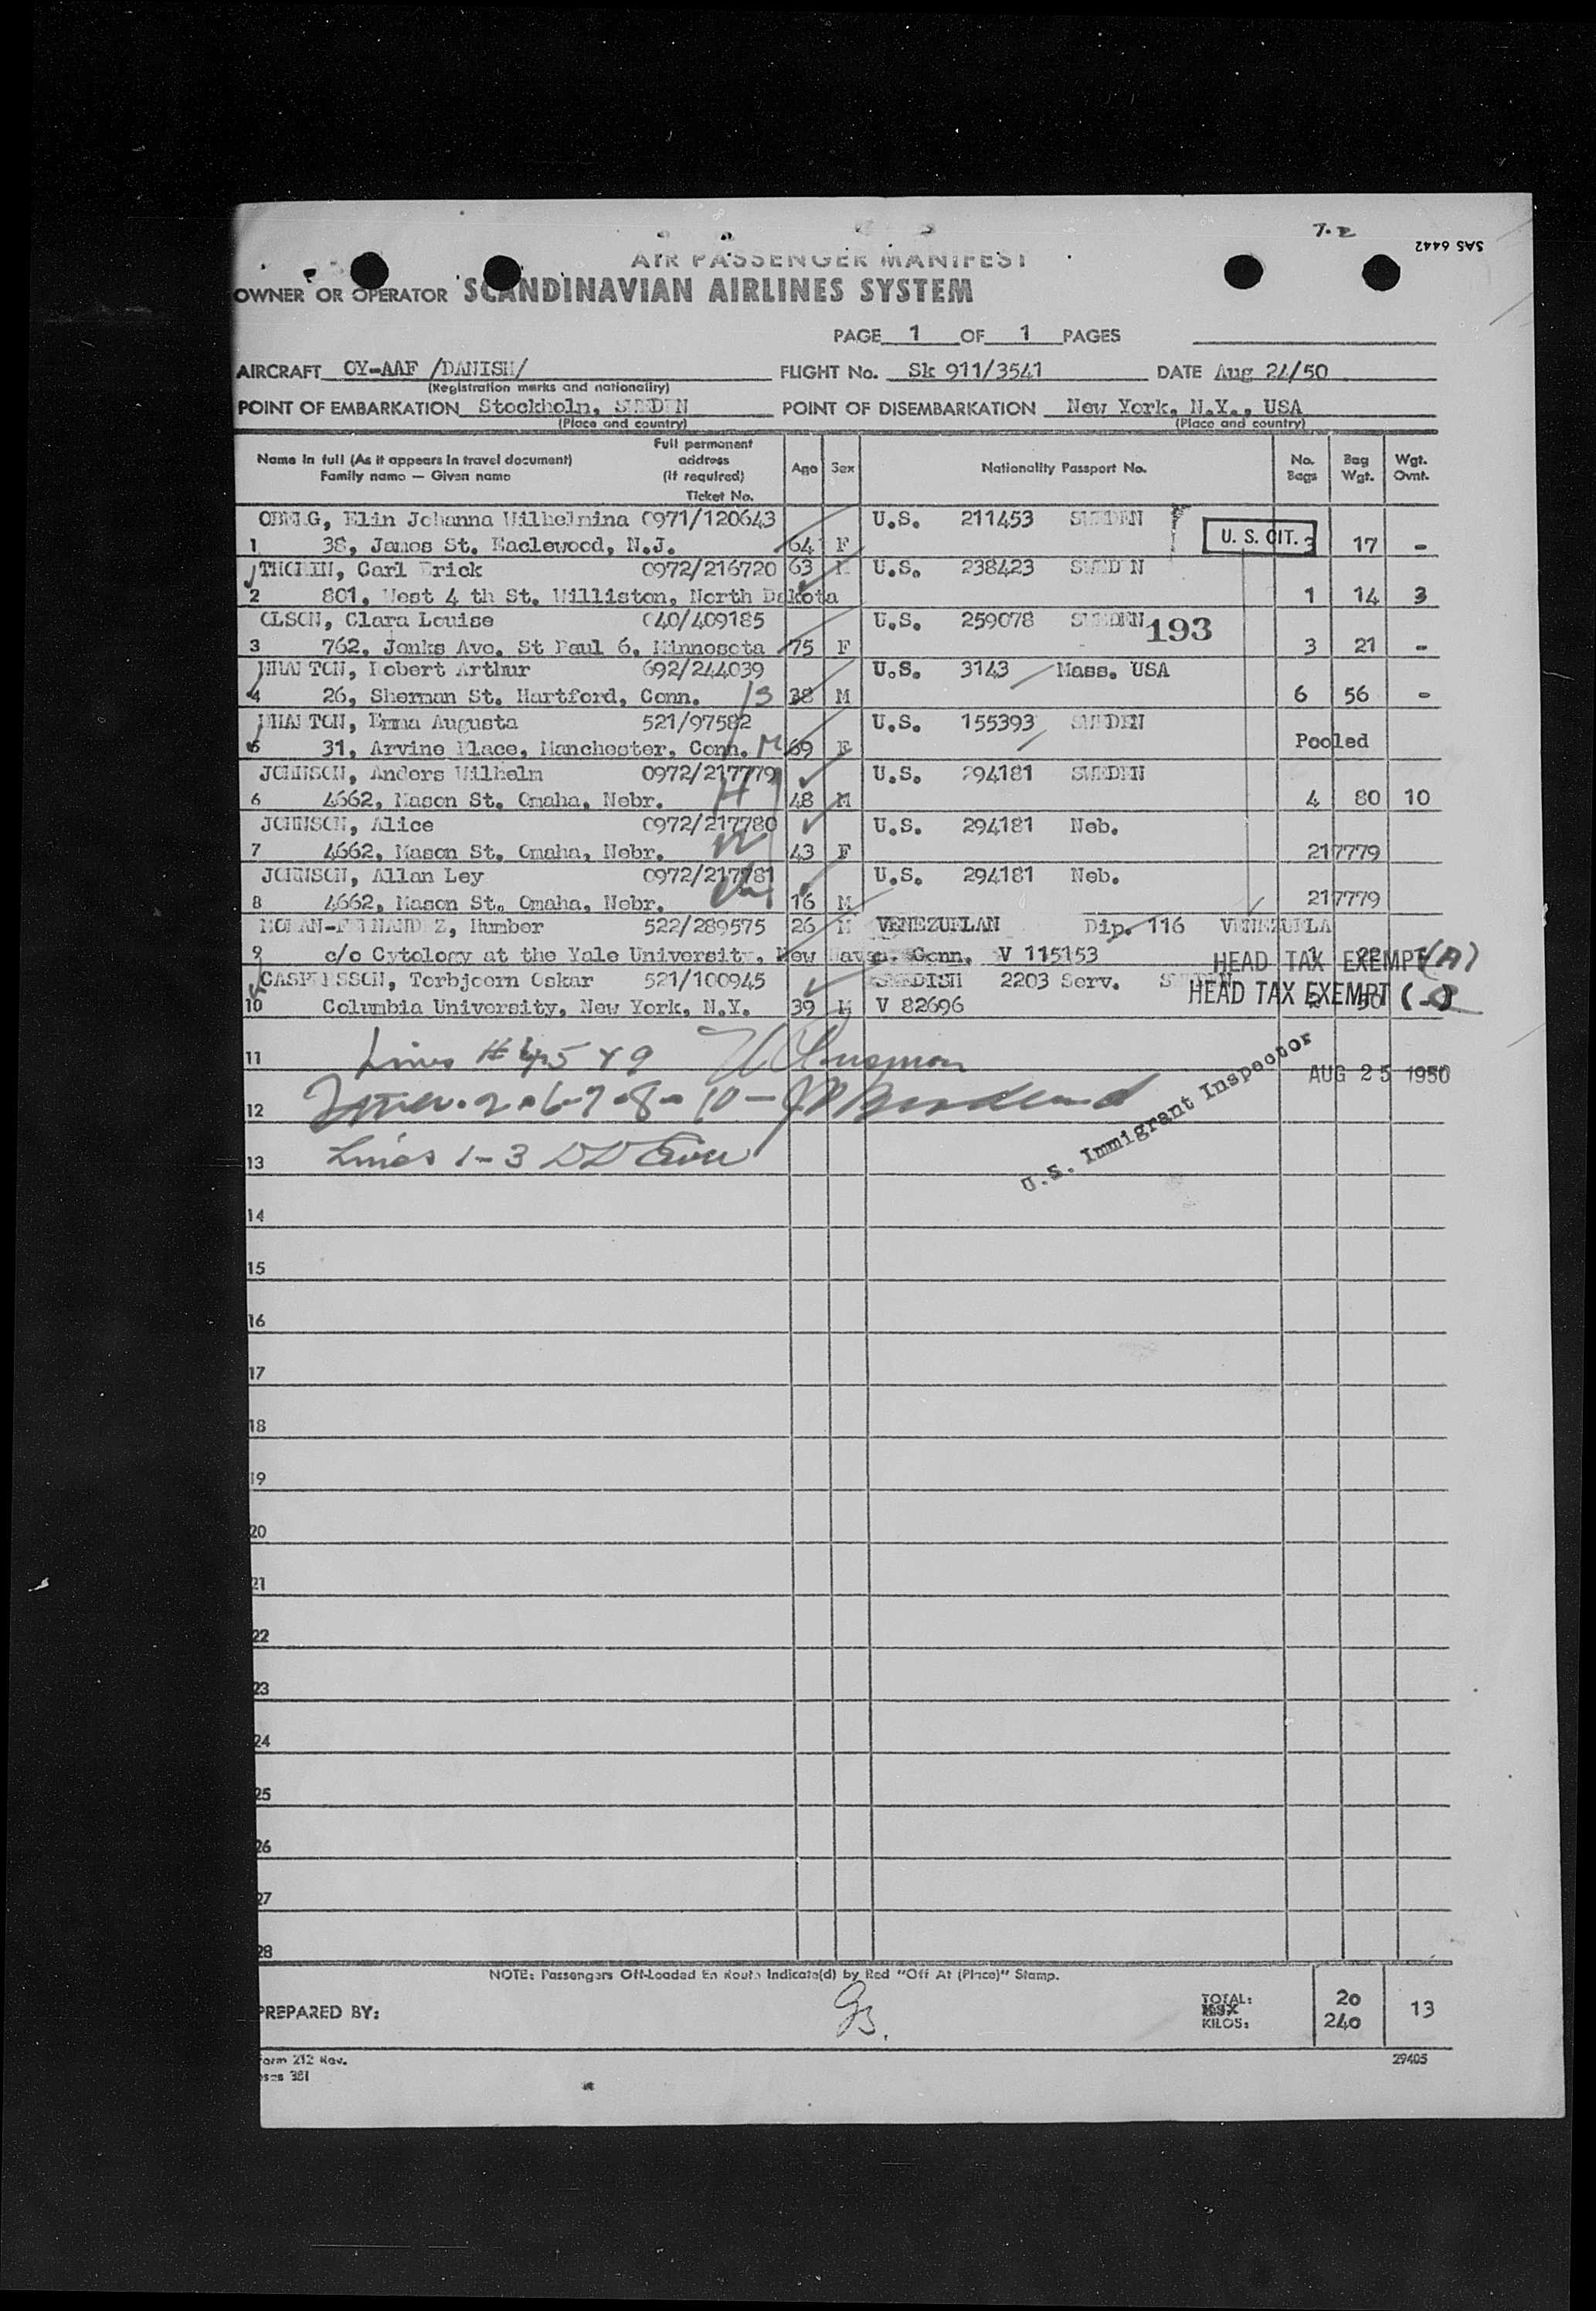 7.2
SAS 6442
AIR PASSENGER MANIFEST
OWNER OR OPERATOR SCANDINAVIAN AIRLINES SYSTEM
PAGE 1 OF 1 PAGES
AIRCRAFT OY-AAF /DANISH/ FLIGHT No. Sk 911/3541 DATE Aug 24/50
(Registration marks and nationality)
POINT OF EMBARKATION Stockholm, SWEDEN POINT OF DISEMBARKATION New York, N.Y., USA
(Place and country) (Place and country)
Name in full (As it appears in travel document) Family name — Given name Full permanent address (if required) Ticket No. Age Sex Nationality Passport No. No. Bags Bag Wgt. Wgt. Ovnt.
OBERG, Elin Johanna Wilhelmina 0971/120643 U.S. 211453 SWEDEN
1 38, James St. Eaclewood, N.J. 64 F U. S. CIT. 3 17 -
THOLIN, Carl Erick 0972/216720 63 M U.S. 238423 SWEDEN
2 801, West 4 th St. Williston, North Dakota 1 14 3
OLSON, Clara Louise 040/409185 U.S. 259078 SWEDEN 193
3 762, Jenks Ave. St Paul 6, Minnosota 75 F 3 21 -
TON, Robert Arthur 692/244039 U.S. 3143 Mass. USA
4 26, Sherman St. Hartford, Conn. 38 M 6 56 -
TON, Emma Augusta 521/97582 U.S. 155393 SWEDEN
5 31, Arvine Place, Manchester, Conn. 69 F Pooled
JOHNSON, Anders Wilhelm 0972/217779 U.S. 294181 SWEDEN
6 4662, Mason St. Omaha, Nebr. H 48 M 4 80 10
JOHNSON, Alice 0972/217780 U.S. 294181 Neb.
7 4662, Mason St. Omaha, Nebr. W 43 F 217779
JOHNSON, Allan Ley 0972/217781 U.S. 294181 Neb.
8 4662, Mason St. Omaha, Nebr. Ch 16 M 217779
Humber 522/289575 26 M VENEZUELAN Dip. 116 VENEZUELA
9 c/o Cytology at the Yale University, New Haven. Conn. V 115153 1 HEAD TAX EXEMPT (A)
CASPERSSON, Torbjoern Oskar 521/100945 SWEDISH 2203 Serv. SWEDEN
10 Columbia University, New York, N.Y. 39 M V 82696 HEAD TAX EXEMPT
11 Lines # 4 5 & 9 AUG 25 1950
12 2-6-7-8-10-
U.S. Immigrant Inspector
13 Lines 1-3
14
15
16
17
18
19
20
21
22
23
24
25
26
27
28
NOTE: Passengers Off-Loaded En Route Indicate(d) by Red "Off At (Place)" Stamp.
PREPARED BY: TOTAL: KILOS: 20 240 13
Form 212 Rev. 29405
381